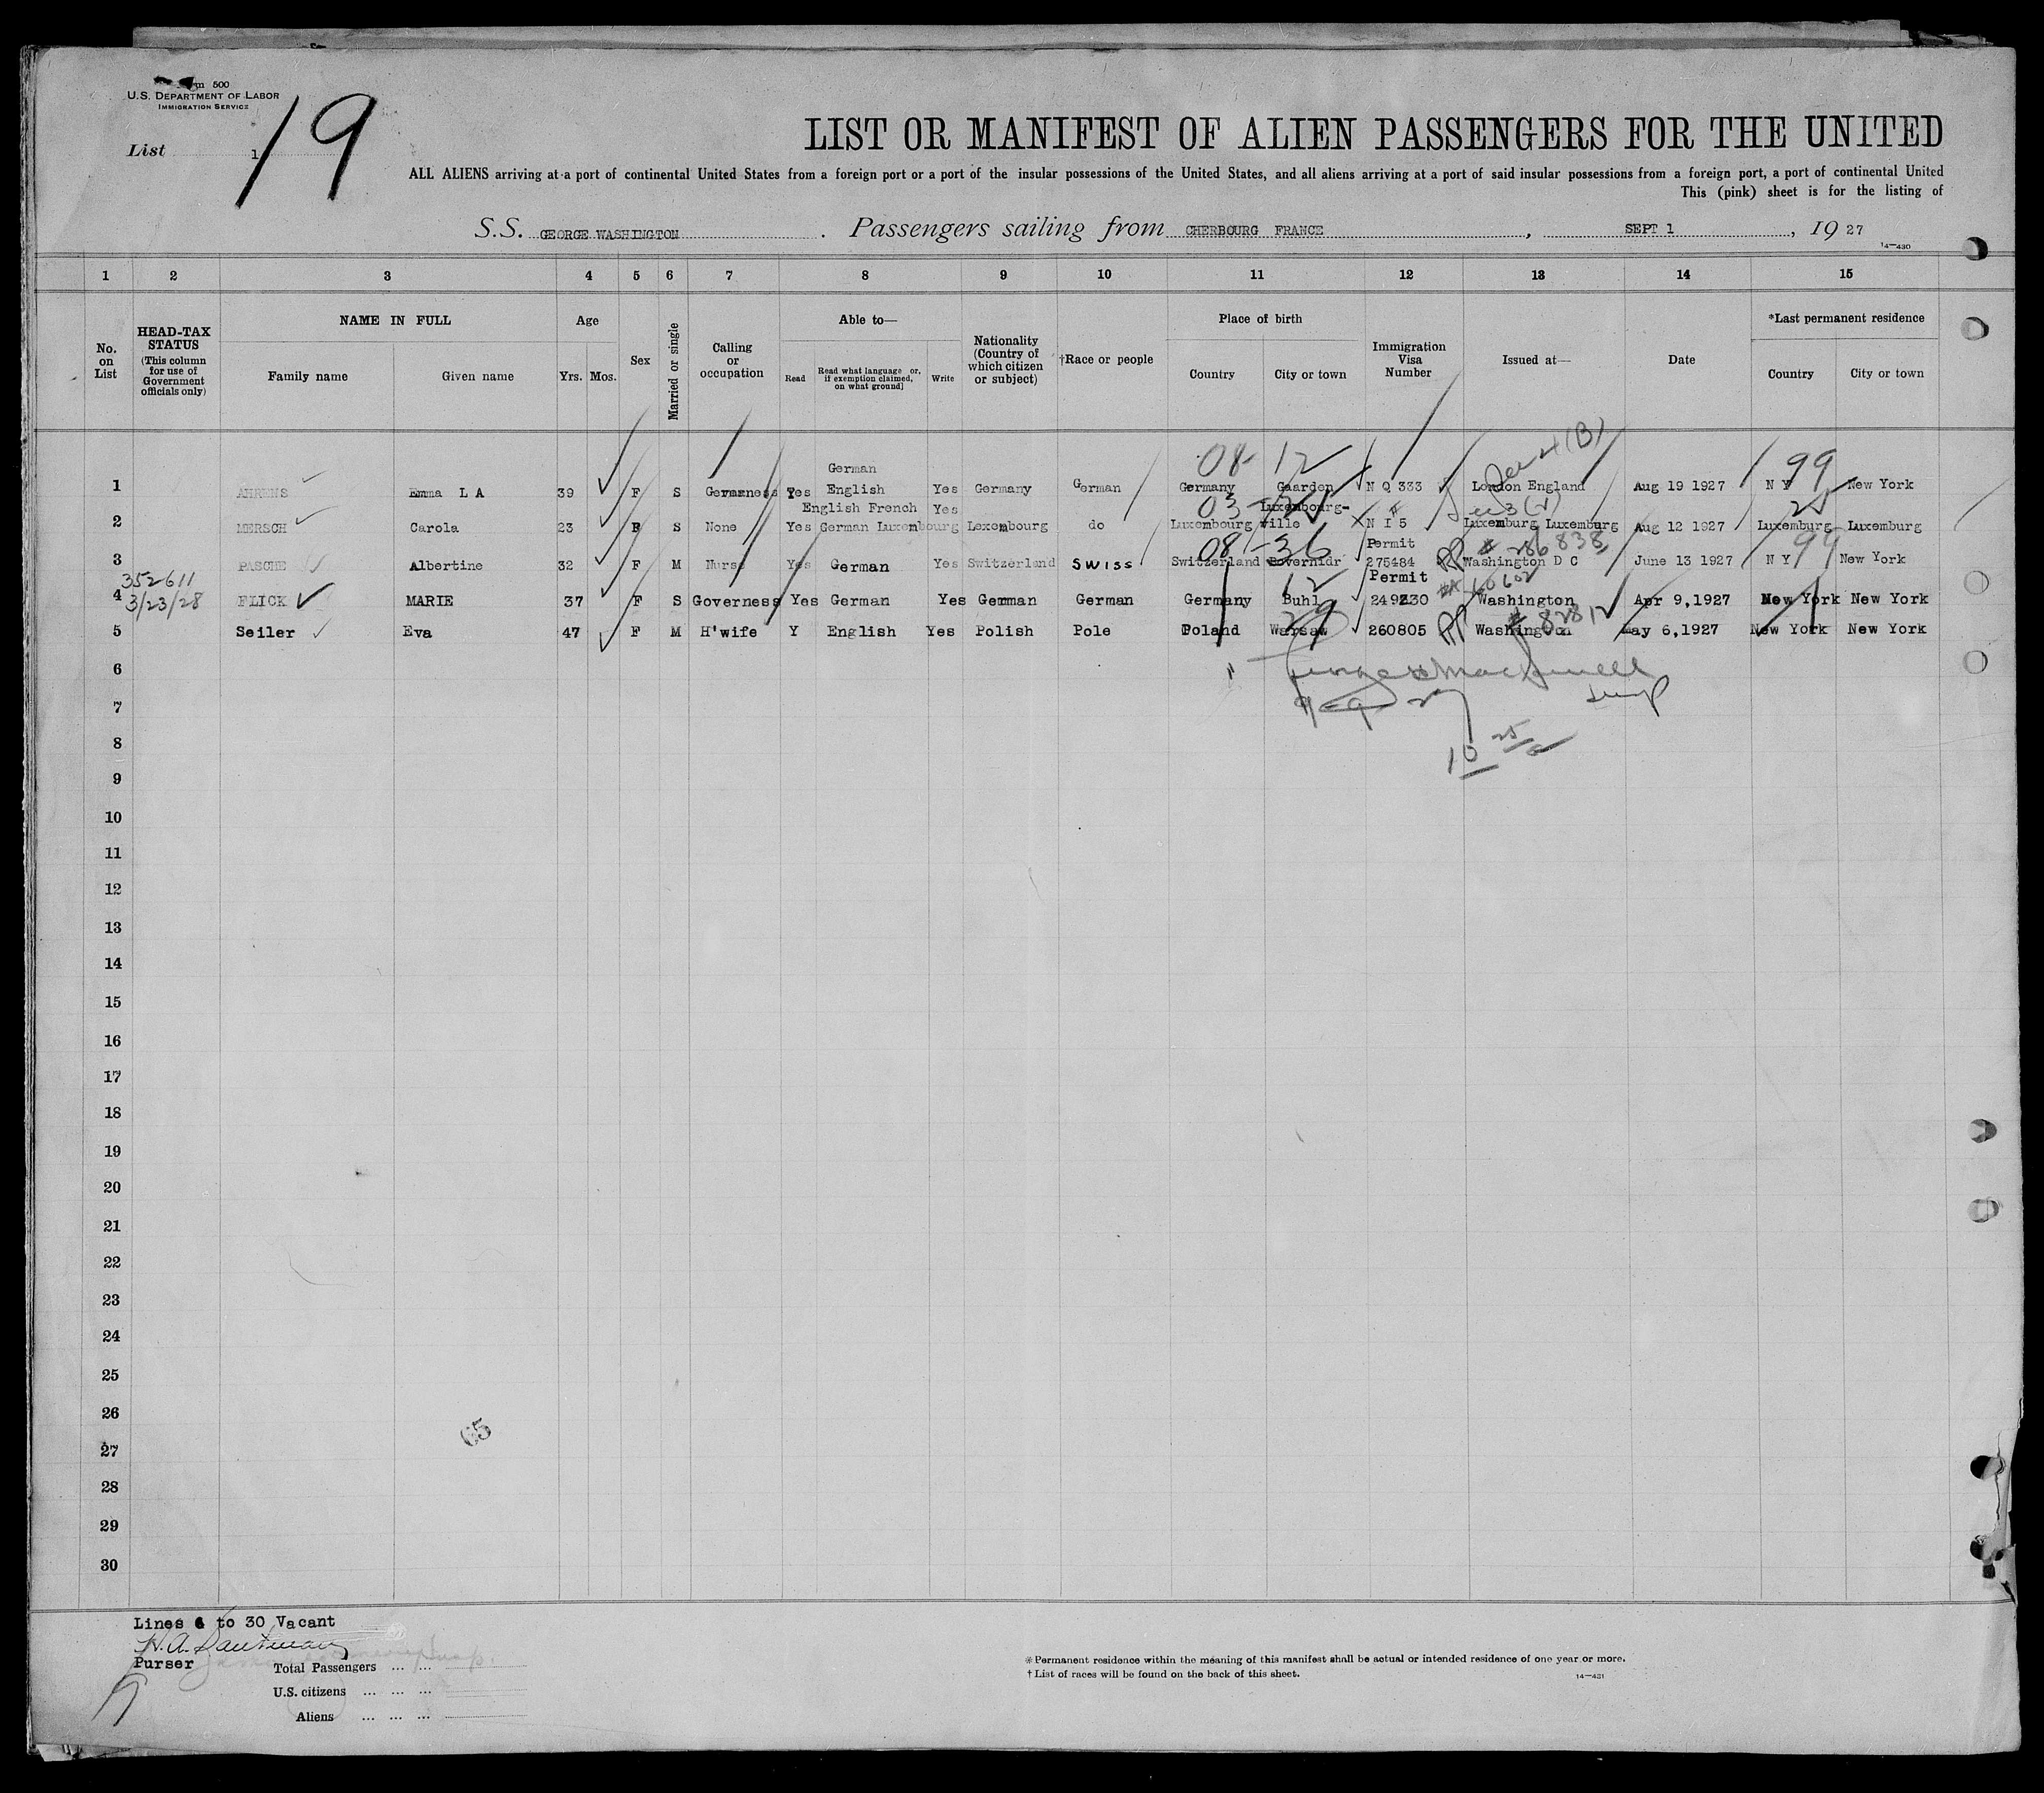 500
U.S. DEPARTMENT OF LABOR
IMMIGRATION SERVICE
List 1
19
LIST OR MANIFEST OF ALIEN PASSENGERS FOR THE UNITED
ALL ALIENS arriving at a port of continental United States from a foreign port or a port of the insular possessions of the United States, and all aliens arriving at a port of said insular possessions from a foreign port, a port of continental United
This (pink) sheet is for the listing of
S.S. GEORGE WASHINGTON. Passengers sailing from CHERBOURG FRANCE, SEPT 1, 1927
14-430
1 2 3 4 5 6 7 8 9 10 11 12 13 14 15
No. on List
HEAD-TAX STATUS (This column for use of Government officials only)
NAME IN FULL
Family name Given name
Age
Yrs. Mos.
Sex
Married or single
Calling or occupation
Able to—
Read
Read what language or, if exemption claimed, on what ground]
Write
Nationality (Country of which citizen or subject)
†Race or people
Place of birth
Country City or town
Immigration Visa Number
Issued at—
Date
*Last permanent residence
Country City or town
08- 12 99
1 AHRENS Emma L A 39 F S Governess Yes German English Yes Germany German Germany Gaarden N Q 333 London England Aug 19 1927 N Y New York
03
2 MERSCH Carola 23 F S None Yes English French German Luxembourg Yes Lexembourg do Luxembourg Luxembourg-ville N I 5 Luxemburg Luxemburg Aug 12 1927 Luxemburg Luxemburg
08-36 # 286838 99
3 PASCHE Albertine 32 F M Nurse Yes German Yes Switzerland SWISS Switzerland Bovernidr Permit 275484 Washington D C June 13 1927 N Y New York
352611
3/23/28
12
4 FLICK MARIE 37 F S Governess Yes German Yes German German Germany Buhl Permit 249230 Washington Apr 9,1927 New York New York
# 82812
5 Seiler Eva 47 F M H'wife Y English Yes Polish Pole Poland Warsaw 260805 Washington ay 6,1927 New York New York
6
7
8
9
10
11
12
13
14
15
16
17
18
19
20
21
22
23
24
25
26
27
28
29
30
65
Lines 6 to 30 Vacant
Purser
Total Passengers ... ...
U.S. citizens ... ... ...
Aliens ... ... ...
*Permanent residence within the meaning of this manifest shall be actual or intended residence of one year or more.
†List of races will be found on the back of this sheet.
14-431